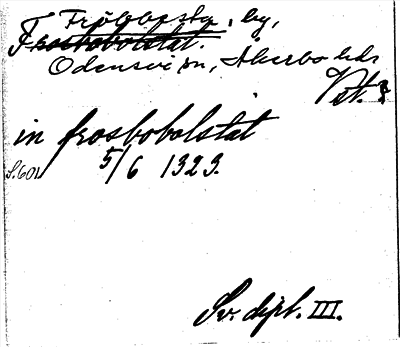 Fröbbesta, by,
Frosbobolstat.
Odensvi sn, Åkerbo hd
Vst.?
in frosbobolstat
S. 601 5/6 1323.
Sv. dipl. III.